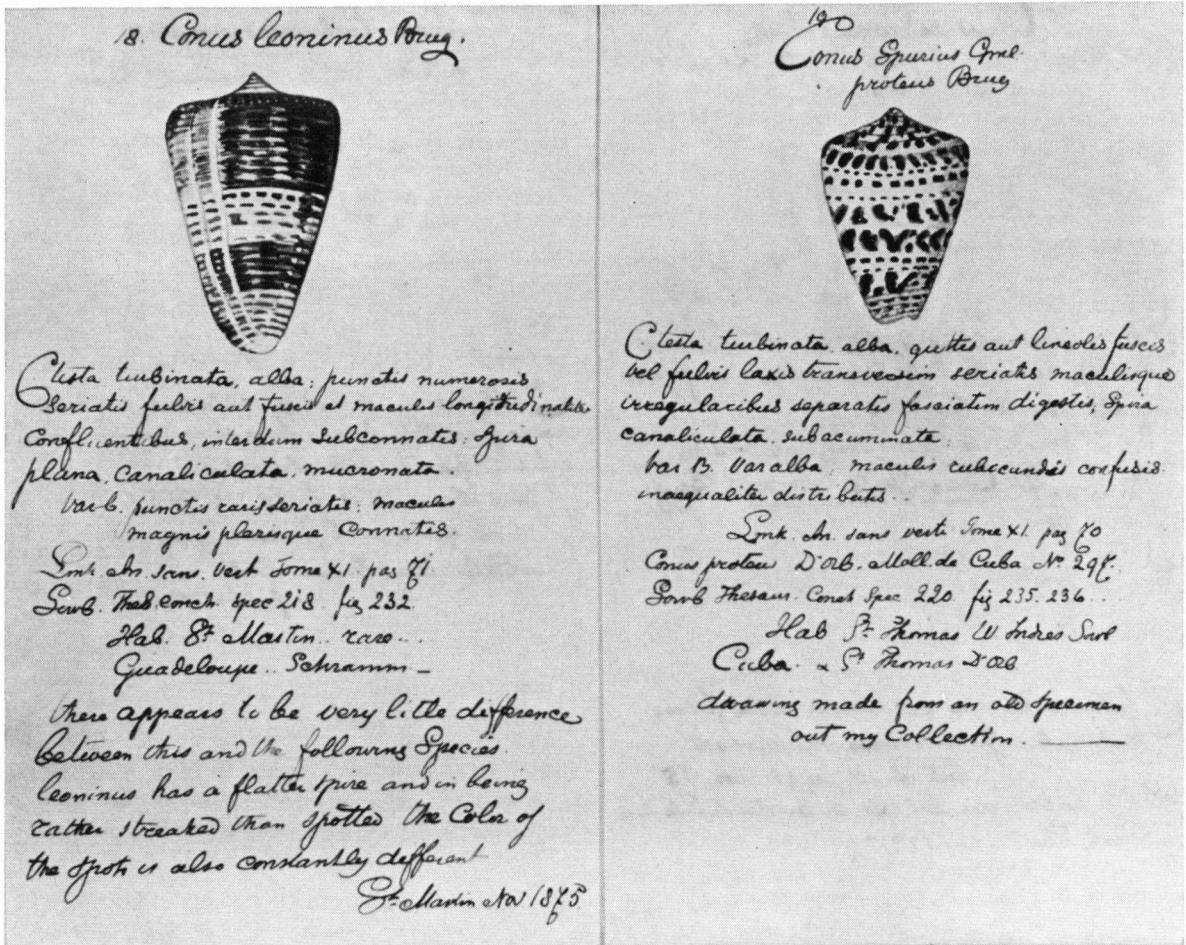 18. Conus leoninus Brug.
C testa turbinata, alba; punctis numerosis
seriatis fulvis aut fuscis et maculis longitudinalite
confluentibus, interdum subconnatis; spira
plana, canaliculata, mucronata.
Var b. punctis raris seriatis; maculis
magnis plerisque connatis.
Lmk An. sans. Vert Tome XI. pag 71
Sowb. Thes. conch spec 218 fig 232
Hab. St Martin.. rare..
Guadeloupe.. Schramm –
there appears to be very little difference
between this and the following Species.
leoninus has a flatter spire and in being
rather streaked than spotted the Color of
the spots is also constantly different
St. Martin Nov 1875
Conus Spurius Gmel.
proteus Brug
C testa turbinata, alba, guttis aut lineolis fuscis
vel fulvis laxis transversim seriatis maculisque
irregularibus separatis fasciatim digestis, Spira
canaliculata, subacuminata;
Var B. Var alba, maculis rubicundis confusis
inaequaliter distributis..
Lmk. An. sans vert Tome XI pag 70
Conus proteus D'Orb. Moll. de Cuba No 297.
Sowb Thesaur. Conch Spec 220 fig 235. 236..
Hab St. Thomas W Indies Sow
Cuba. & St Thomas D'Orb
drawing made from an old specimen
out my Collection.